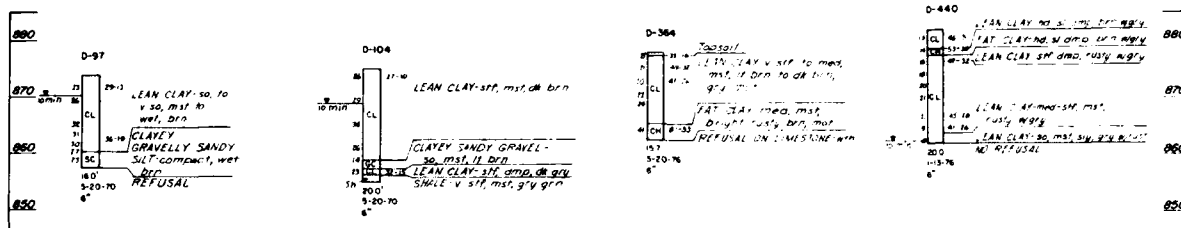 880
870
860
850
D-97
CL
SC
29-13
LEAN CLAY-so, to
v so, mst to
wet, brn
36-19
CLAYEY
GRAVELLY SANDY
SILT-compact, wet
brn
16.0'
REFUSAL
5-20-70
6"
10 min
D-104
CL
GC
CL
27-10
LEAN CLAY-stf, mst, dk brn
CLAYEY SANDY GRAVEL-
so, mst, lt brn
LEAN CLAY-stf, dmp, dk gry
Sh
SHALE-v stf, mst, gry grn
20.0'
5-20-70
6"
10 min
D-364
Topsoil
CL
CH
LEAN CLAY v stf to med,
mst, lt brn to dk brn,
gry, mot
FAT CLAY-med, mst,
bright rusty, brn, mot
REFUSAL ON LIMESTONE-wrn
15.7
5-20-76
6"
D-440
CL
CH
CL
LEAN CLAY hd, sl dmp, brn w/gry
FAT CLAY-hd, sl dmp, brn w/gry
LEAN CLAY stf dmp, rusty w/gry
LEAN CLAY-med-stf, mst,
rusty w/gry
LEAN CLAY-so, mst,
NO REFUSAL
20.0
1-13-76
6"
880
870
860
850